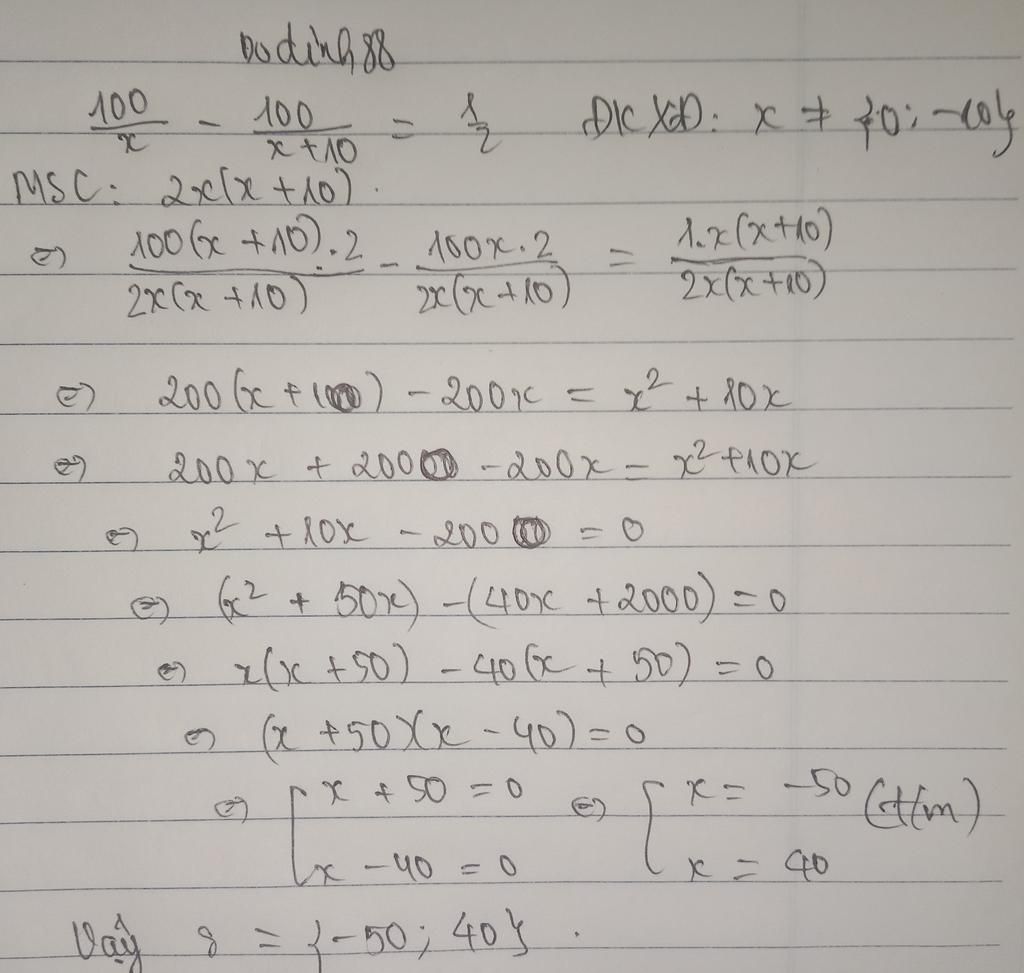 Dodinh88
100/x - 100/(x+10) = 1/2 ĐKXĐ: x ≠ {0; -10}
MSC: 2x(x+10).
⇔ 100(x+10).2/2x(x+10) - 100x.2/2x(x+10) = 1.x(x+10)/2x(x+10)
⇔ 200(x+10) - 200x = x² + 10x
⇔ 200x + 2000 - 200x = x² + 10x
⇔ x² + 10x - 2000 = 0
⇔ (x² + 50x) - (40x + 2000) = 0
⇔ x(x+50) - 40(x+50) = 0
⇔ (x+50)(x-40) = 0
⇔ [x + 50 = 0 ⇔ [x = -50 (t/m)
x - 40 = 0 x = 40
Vậy S = {-50; 40}.